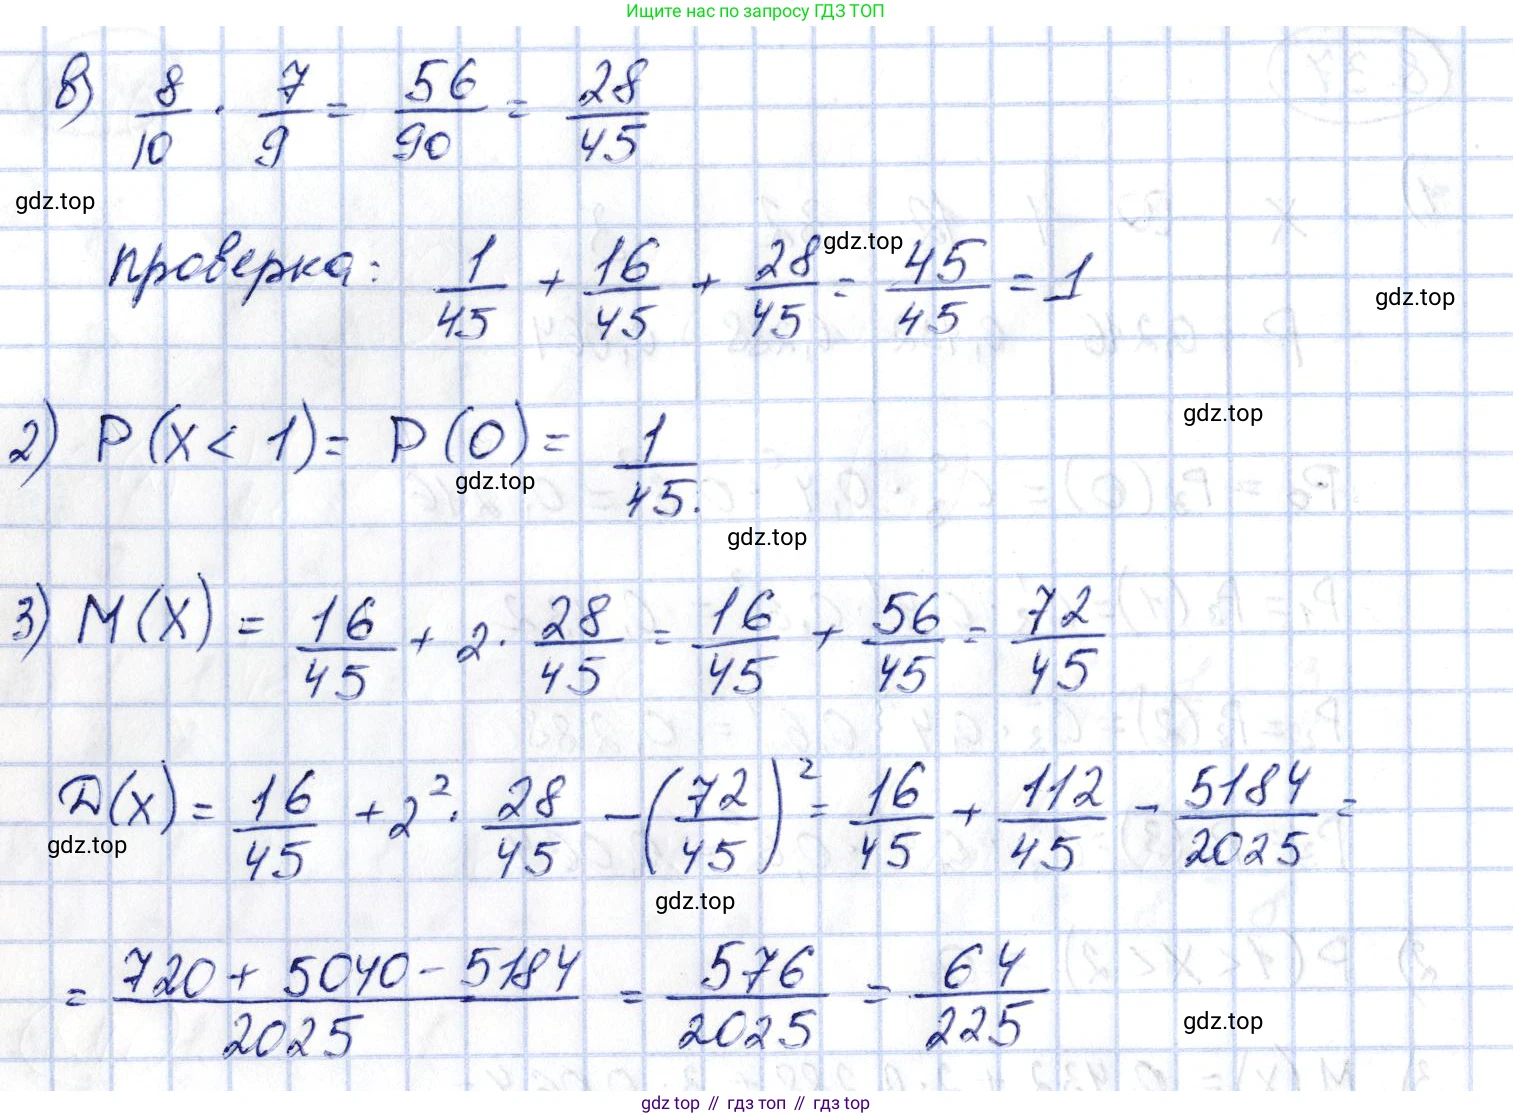 Ищите нас по запросу ГДЗ ТОП
в) 8/10 · 7/9 = 56/90 = 28/45
gdz.top
проверка: 1/45 + 16/45 + 28/45 = 45/45 = 1
gdz.top
gdz.top
2) P(X < 1) = P(0) = 1/45.
gdz.top
gdz.top
gdz.top
3) M(X) = 16/45 + 2 · 28/45 = 16/45 + 56/45 = 72/45
D(X) = 16/45 + 2² · 28/45 − (72/45)² = 16/45 + 112/45 − 5184/2025 =
gdz.top
gdz.top
= 720 + 5040 − 5184/2025 = 576/2025 = 64/225
gdz.top
gdz top // гдз топ // гдз top